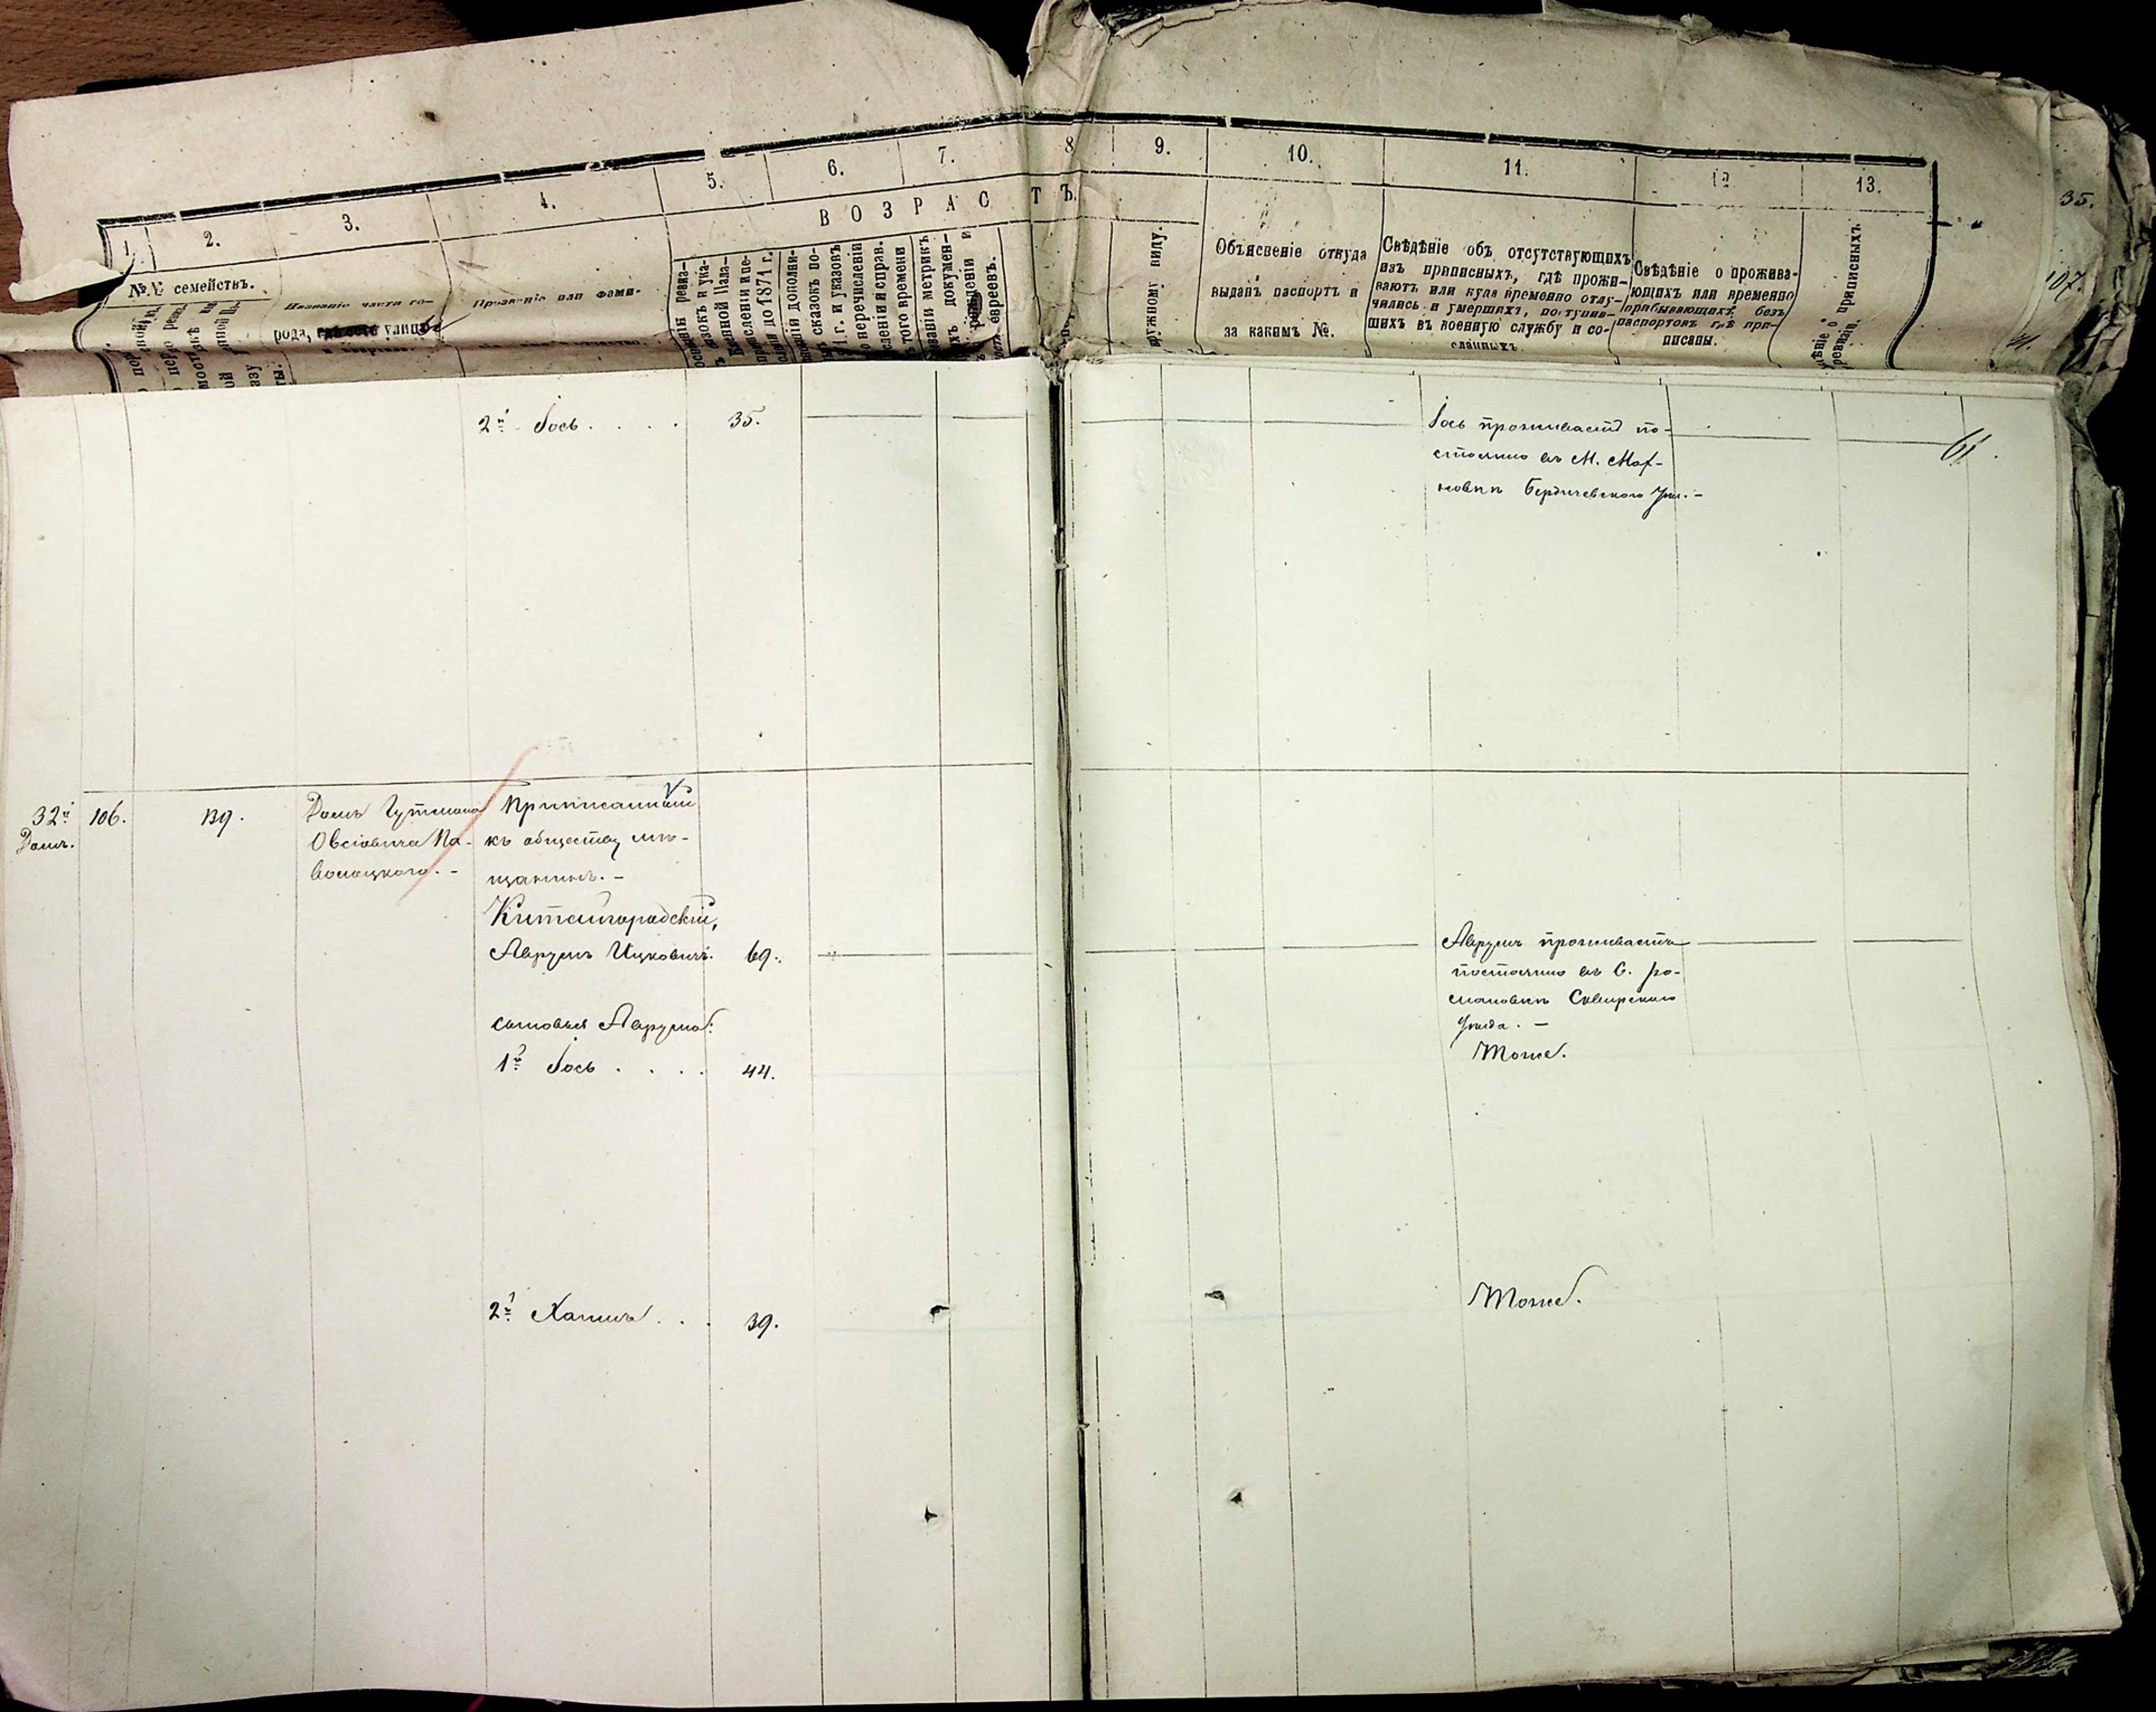 1. 2. 3. 4. 5. 6. 7. 8 9. 10. 11. 12 13.
35.
В О З Р А С Т Ъ.
107.
№№ семействъ.
Названіе части го-
рода,
Прозваніе или фами-
до 1871 г.
евреевъ.
ружному виду.
Объясненіе откуда
выданъ паспортъ и
за какимъ №.
Свѣдѣніе объ отсутствующихъ
изъ приписныхъ, гдѣ прожи-
ваютъ или куда временно отлу-
чились и умершихъ, поступив-
шихъ въ военную службу и со-
сланныхъ.
Свѣдѣніе о прожива-
ющихъ или временно
пребывающихъ безъ
паспортовъ гдѣ при-
писаны.
о приписныхъ
2й Іось . . . . 35.
Іось проживаетъ по-
стоянно въ М. Мах-
новкѣ Бердичевскаго Уѣз. –
61.
32й
Домъ.
106.
139.
Домъ Гутмана
Овсіовича Па-
волоцкаго. –
Приписанный
къ обществу мѣ-
щанинъ. –
Китайгородскій,
Аврумъ Ицковичъ. 69.
Аврумъ проживаетъ
постоянно въ С. Ро-
мановкѣ Сквирскаго
Уѣзда. –
сыновья Аврума:
1й Іось . . . . 44.
Тоже.
2й Хаимъ . . . 39.
Тоже.